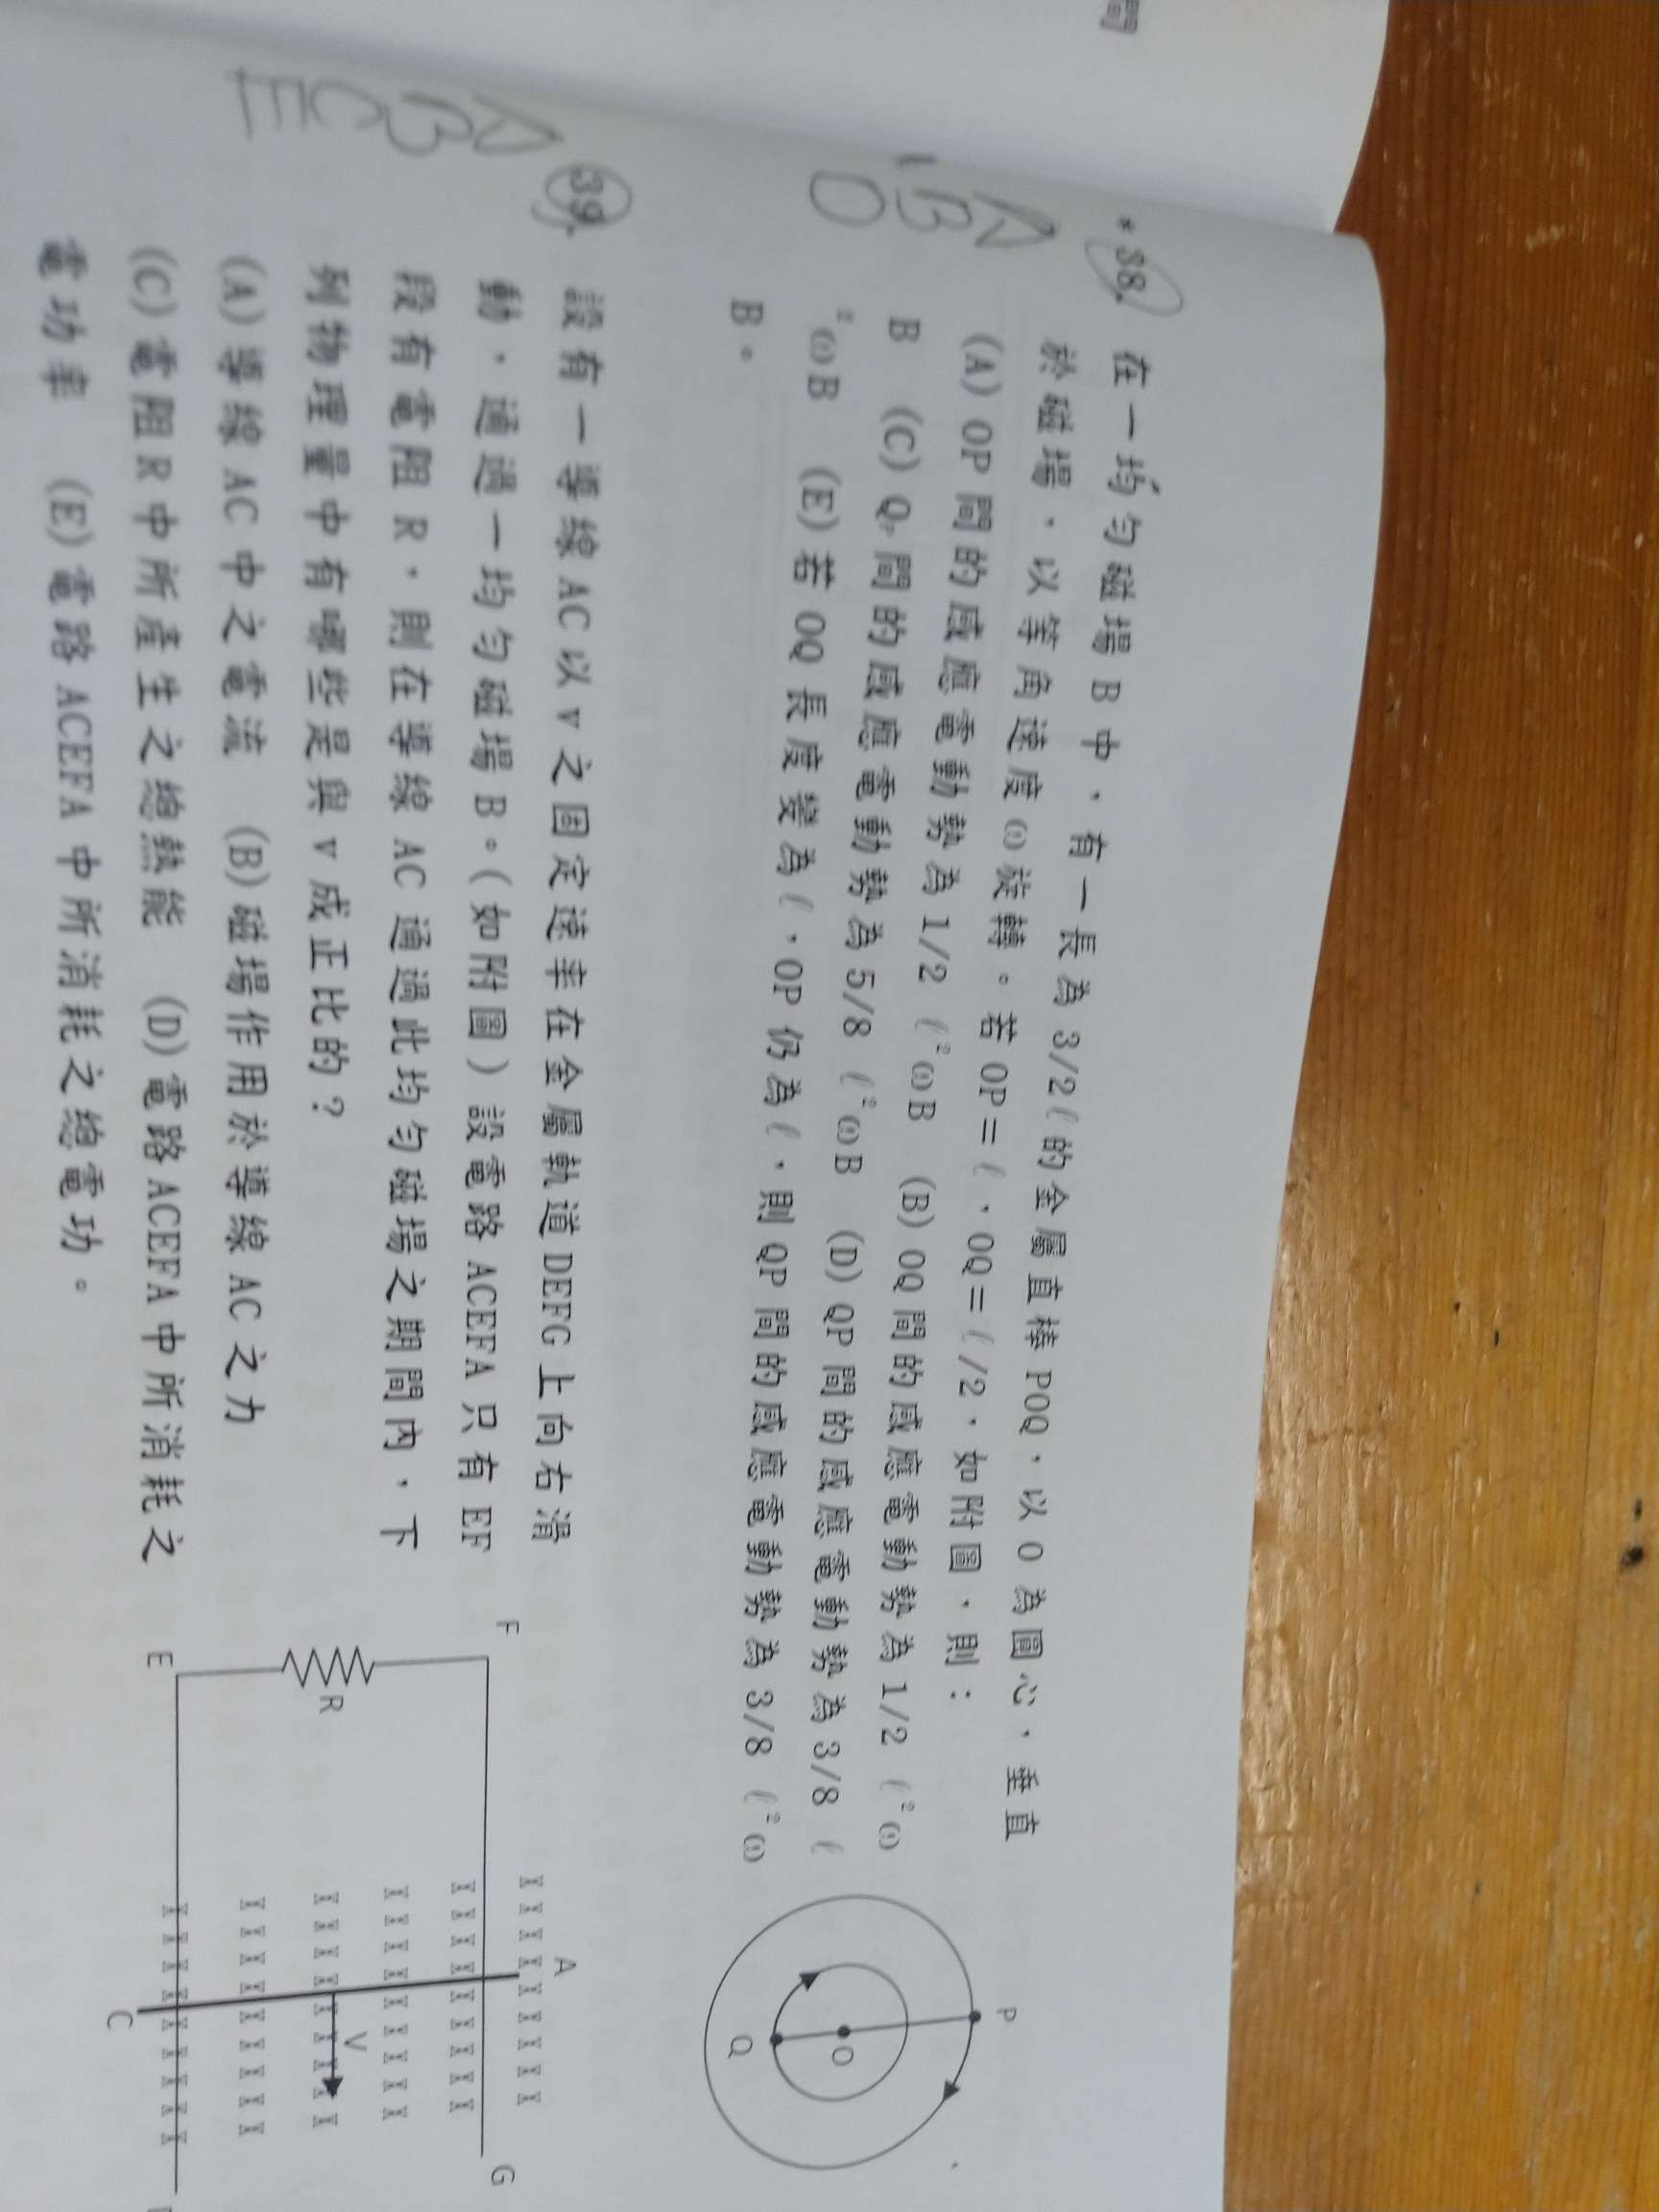 間
*38. 在一均勻磁場 B 中，有一長為 3/2ℓ 的金屬直棒 POQ，以 O 為圓心，垂直
於磁場，以等角速度 ω 旋轉。若 OP＝ℓ，OQ＝ℓ/2，如附圖，則：
(A) OP 間的感應電動勢為 1/2 ℓ²ωB (B) OQ 間的感應電動勢為 1/2 ℓ²ω
B (C) QP 間的感應電動勢為 5/8 ℓ²ωB (D) QP 間的感應電動勢為 3/8 ℓ
²ωB (E) 若 OQ 長度變為 ℓ，OP 仍為 ℓ，則 QP 間的感應電動勢為 3/8 ℓ²ω
B。
A
B
D
P
O
Q
39. 設有一導線 AC 以 v 之固定速率在金屬軌道 DEFG 上向右滑
動，通過一均勻磁場 B。(如附圖) 設電路 ACEFA 只有 EF
段有電阻 R，則在導線 AC 通過此均勻磁場之期間內，下
列物理量中有哪些是與 v 成正比的？
(A) 導線 AC 中之電流 (B) 磁場作用於導線 AC 之力
(C) 電阻 R 中所產生之總熱能 (D) 電路 ACEFA 中所消耗之
電功率 (E) 電路 ACEFA 中所消耗之總電功。
A
B
C
E
F
A
G
R
V
E
C